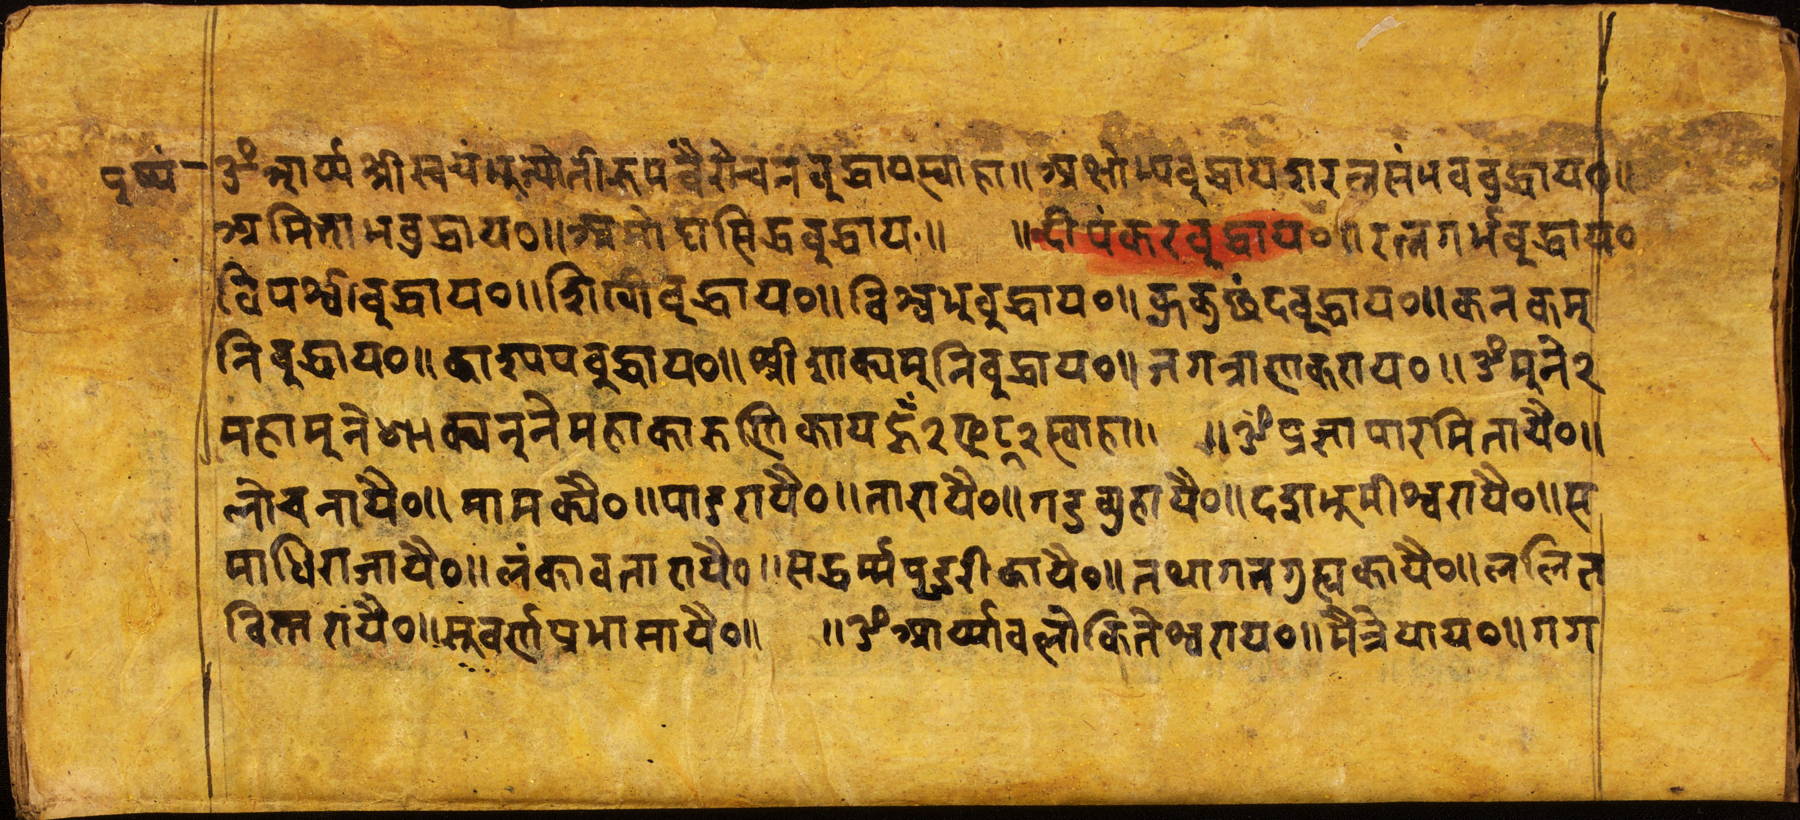 पुष्पं - ॐ आर्य्य श्री स्वयंभुज्योतीरूप वैरोचन बुद्धाय स्वाहा॥ अक्षोभ्यबुद्धाय॰ रत्नसंभव बुद्धाय०॥
अमिताभबुद्धाय०॥ अमोघसिद्धबुद्धाय॰॥ ॥दीपंकरबुद्धाय०॥ रत्नगर्भबुद्धाय०
विपश्यीबुद्धाय०॥ शिखीबुद्धाय०॥ विश्वभुबुद्धाय०॥ क्रकुछंदबुद्धाय०॥ कनकमु
निबुद्धाय०॥ काश्यपबुद्धाय०॥ श्रीशाक्यमुनिबुद्धाय०॥ ॥ ॐ मुने२
महामुने शाक्यनुने महाकारुणिकाय हूँ२ फट्२ स्वाहा॥ ॥ॐ प्रज्ञापारमितायै०॥
लोचनायै०॥ मामक्यै०॥ पाडरायै०॥ तारायै०॥ गडव्युहायै०॥ दशभुमीश्वरायै०॥ स
माधिराजायै०॥ लंकावतारायै०॥ सद्धर्म्मपुडरीकायै०॥ तथागतगुह्यकायै०॥ ललित
विस्तरायै०॥ सुवर्णप्रभासायै०॥ ॥ॐ आर्य्यावलोकितेश्वराय०॥ मैत्रेयाय०॥ गग